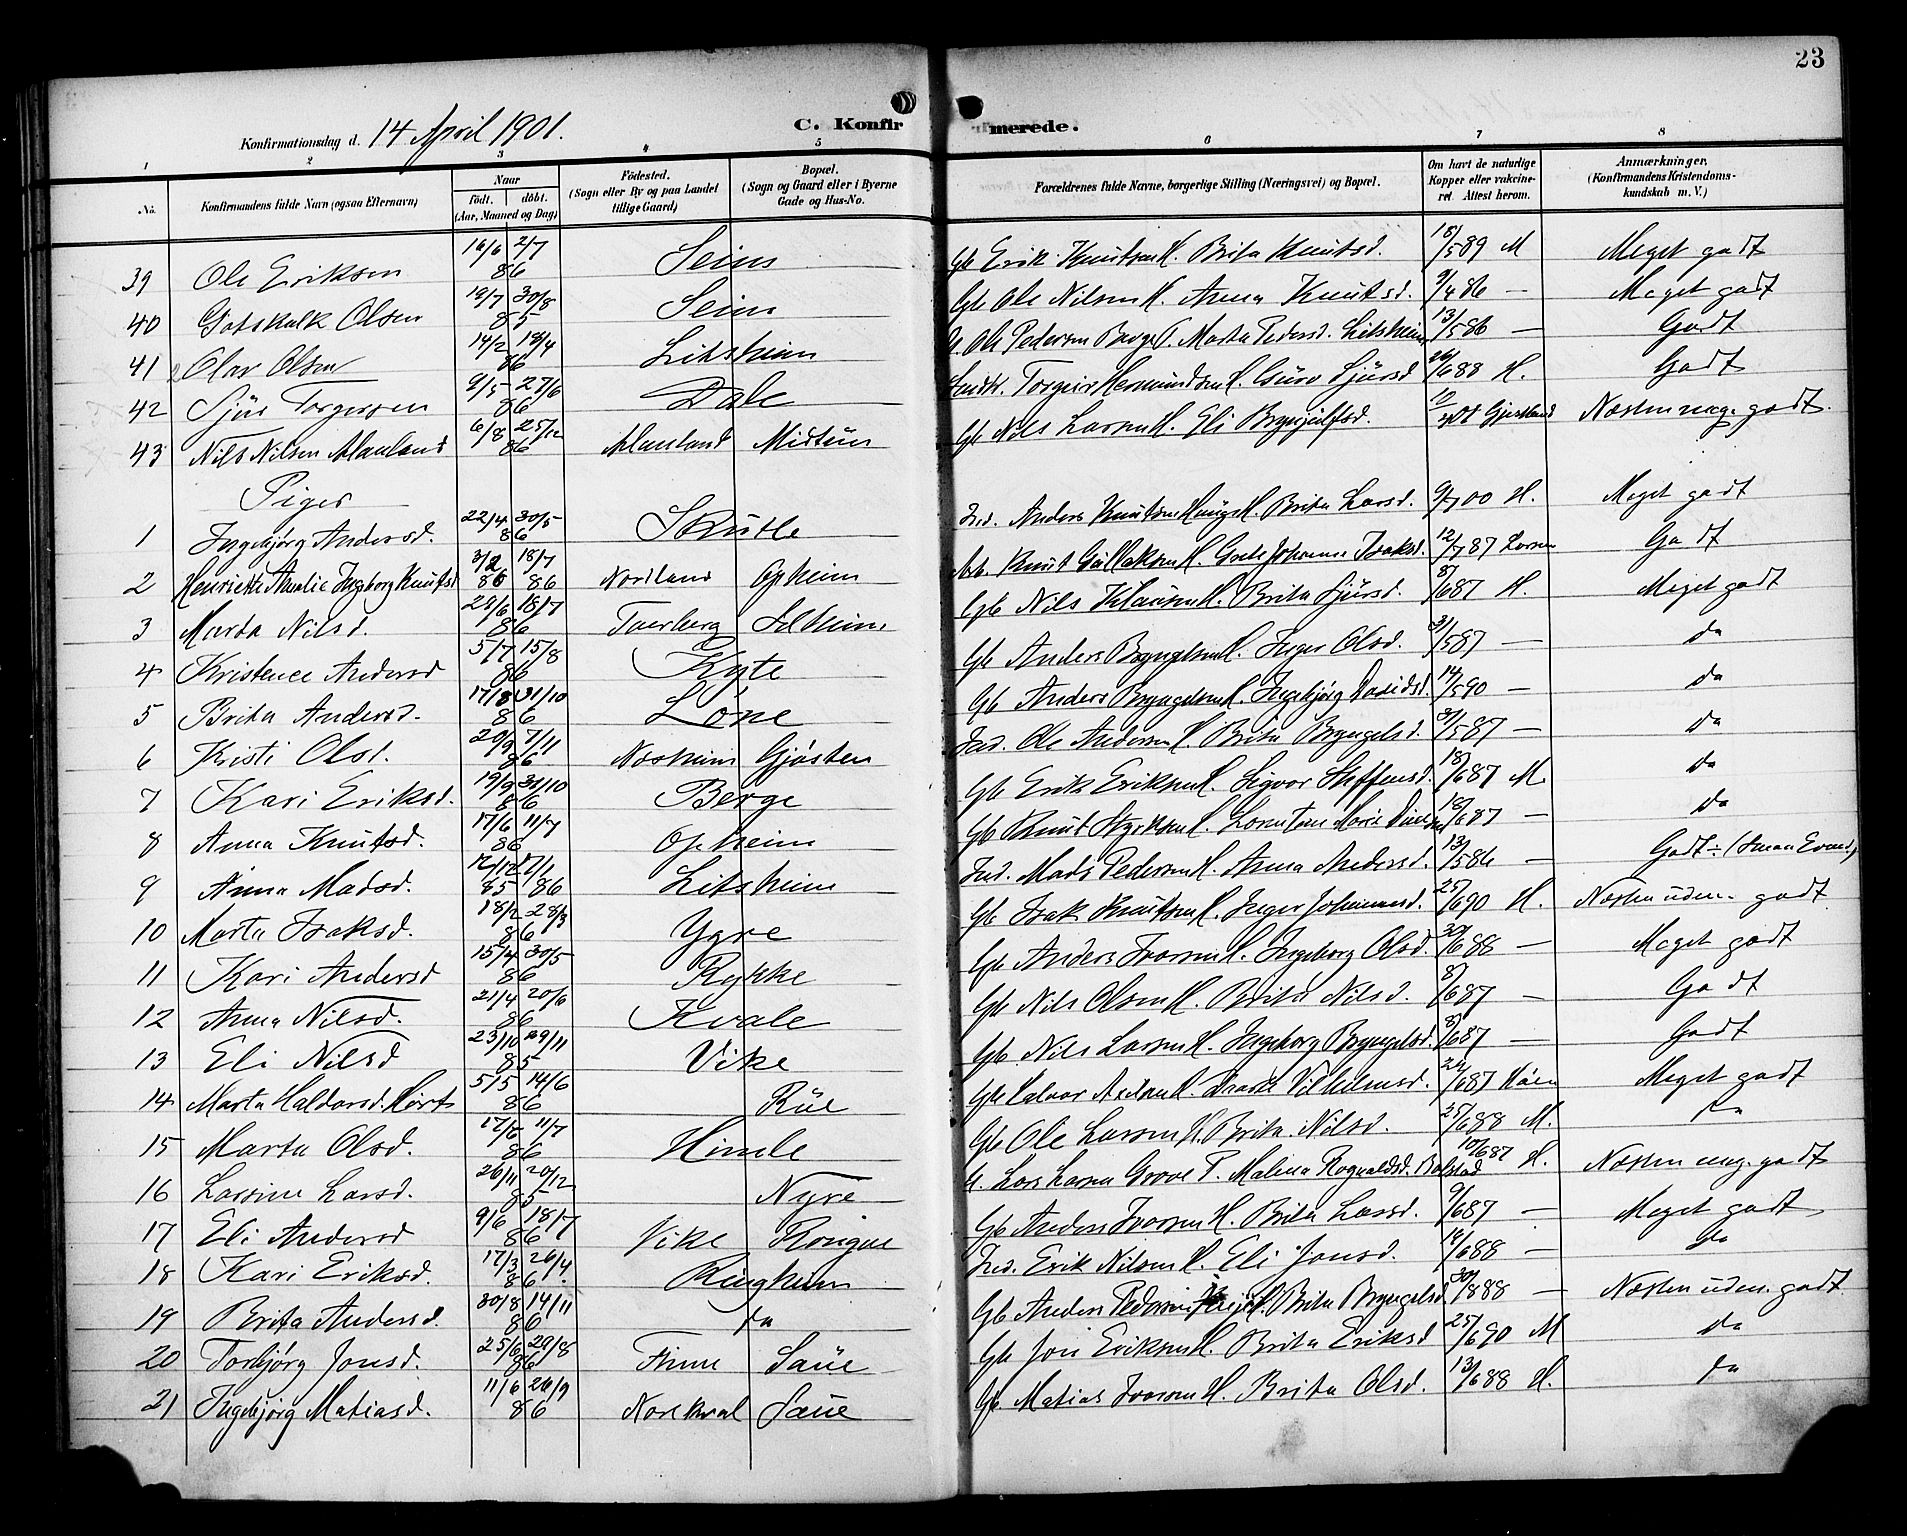 23
Konfirmationsdag d. 14 April 1901.
C. Konfirmerede.
1 2 3 4 5 6 7 8
No. Konfirmandens fulde Navn (ogsaa Efternavn) Naar født. døbt. (Aar, Maaned og Dag) Fødested. (Sogn eller By og paa Landet tillige Gaard) Bopæl. (Sogn og Gaard eller i Byerne Gade og Hus-No. Forældrenes fulde Navne, borgerlige Stilling (Næringsvei) og Bopæl. Om havt de naturlige Kopper eller vakcineret. Attest herom. Anmærkninger. (Konfirmandens Kristendomskundskab m. V.)
39 Ole Eriksen 16/6 2/7 86 Seim Gb Erik Knutsen H. Brita Knutsd. 18/5 89 M Meget godt
40 Gotskalk Olsen 19/7 30/8 85 Seim Gb Ole Nilsen H. Anna Knutsd. 9/4 86 — Meget godt
41 Olav Olsen 14/2 18/4 86 Litsheim U. Ole Pedersen Berge P. Marta Pedersd. Litsheim 13/5 86 — Godt
42 Sjur Torgersen 9/5 27/6 86 Dale Torgeir Hermundsen H. Guro Sjursd 26/6 88 H. Godt
43 Nils Nilsen Alanland 6/8 25/12 86 Alanland Midtun Gb Nils Larsen H. Eli Brynjulfsd. Næsten meg. godt.
Piger
1 Ingebjørg Andersd. 22/4 30/5 86 Skutle Ind. Anders Knutsen Hauge H. Brita Larsd. 9/7 00 H. Meget godt
2 Henriette Amalie Ingeborg Knutsd 3/2 86 18/7 86 Nordland Opheim Knut Gullaksen H. Johanna Isaksd. 12/7 87 Larsen Godt
3 Marta Nilsd. 28/6 18/7 86 Tverberg Selheim Gb Nils Klausen H. Brita Sjursd. 8/6 87 H. Meget godt
4 Kristence Andersd 5/7 15/8 86 Kyte Gb Anders Brynjelsen H. Inger Olsd. 31/5 87 — do
5 Brita Andersd. 17/8 31/10 86 Løne Gb Anders Bryngelsen H. Ingebjørg Davidsd. 14/5 90 — do
6 Kristi Olsd. 20/9 7/11 86 Nosheim Gjøsten Ind. Ole Andersen H. Brita Bryngelsd. 31/5 87 — do
7 Kari Eriksd. 19/9 31/10 86 Berge Gb Erik Eriksen H. Sigvor Steffensd. 18/6 87 M do
8 Anna Knutsd. 17/6 11/7 86 Opheim Gb Knut Styrksen H. Marie 18/6 87 — do
9 Anna Madsd. 12/12 85 17/1 86 Litsheim Ind. Mads Pedersen H. Anna Andersd. 13/5 86 — Godt ÷ (smaa Evner)
10 Marta Isaksd. 18/2 28/3 86 Ygre Gb Isak Knutsen H. Inger Johannesd. 25/6 90 H. Næsten uden. godt
11 Kari Andersd 15/4 30/5 86 Rykke Gb Anders Ivarsen H. Ingeborg Olsd. 30/6 88 — Meget godt
12 Anna Nilsd. 21/4 20/6 86 Kvale Gb Nils Olsen H. Brita Nilsd. 8/6 87 — Godt
13 Eli Nilsd 23/10 29/11 85 Vike Gb Nils Larsen H. Ingeborg Bryngelsd. 8/6 87 — Godt
14 Marta Haldorsd. 5/5 14/6 86 Rüe Gb Vilhelmsd. 24/6 87 Meget godt
15 Marta Olsd. 12/5 11/7 86 Himle Gb Ole Larsen H. Brita Nilsd. 25/6 88 M. do
16 Larsine Larsd. 26/11 20/12 85 Nyre U. Lars Larsen Grove P. Malena Rognaldsd. Bolstad 10/6 87 H. Næsten meg. godt
17 Eli Andersd 9/6 18/7 86 Vike Rongve Gb Anders Ivarsen H. Brita Larsd. 9/6 87 — Meget godt
18 Kari Eriksd. 17/3 26/4 86. Ringheim Ind. Erik Nilsen H. Eli Jonsd. 19/6 88 — do
19 Brita Andersd. 30/8 14/11 86 do Gb Anders Pedersen H. Brita Bryngelsd. 30/8 88 — Næsten uden. godt
20 Torbjørg Jonsd. 25/6 29/8 86 Finne Saue Gb Jon Eriksen H. Brita Eriksd 25/6 90 M do
21 Ingebjørg Matiasd. 11/6 26/9 86 Norekval Saue Gb Matias Ivarsen H. Brita Olsd. 13/6 88 H. do